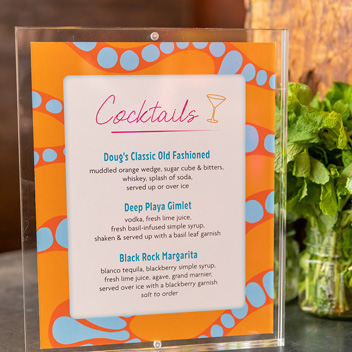 Cocktails
Doug's Classic Old Fashioned
muddled orange wedge, sugar cube & bitters,
whiskey, splash of soda,
served up or over ice
Deep Playa Gimlet
vodka, fresh lime juice,
fresh basil-infused simple syrup,
shaken & served up with a basil leaf garnish
Black Rock Margarita
blanco tequila, blackberry simple syrup,
fresh lime juice, agave, grand marnier,
served over ice with a blackberry garnish
salt to order